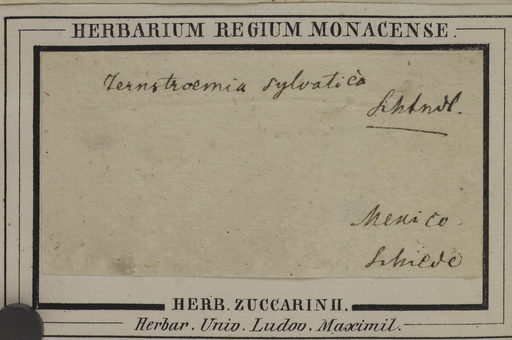 HERBARIUM REGIUM MONACENSE.
Ternstroemia sylvatica
Schtndl.
Mexico.
Schiede
HERB. ZUCCARINII.
Herbar. Univ. Ludov. Maximil.